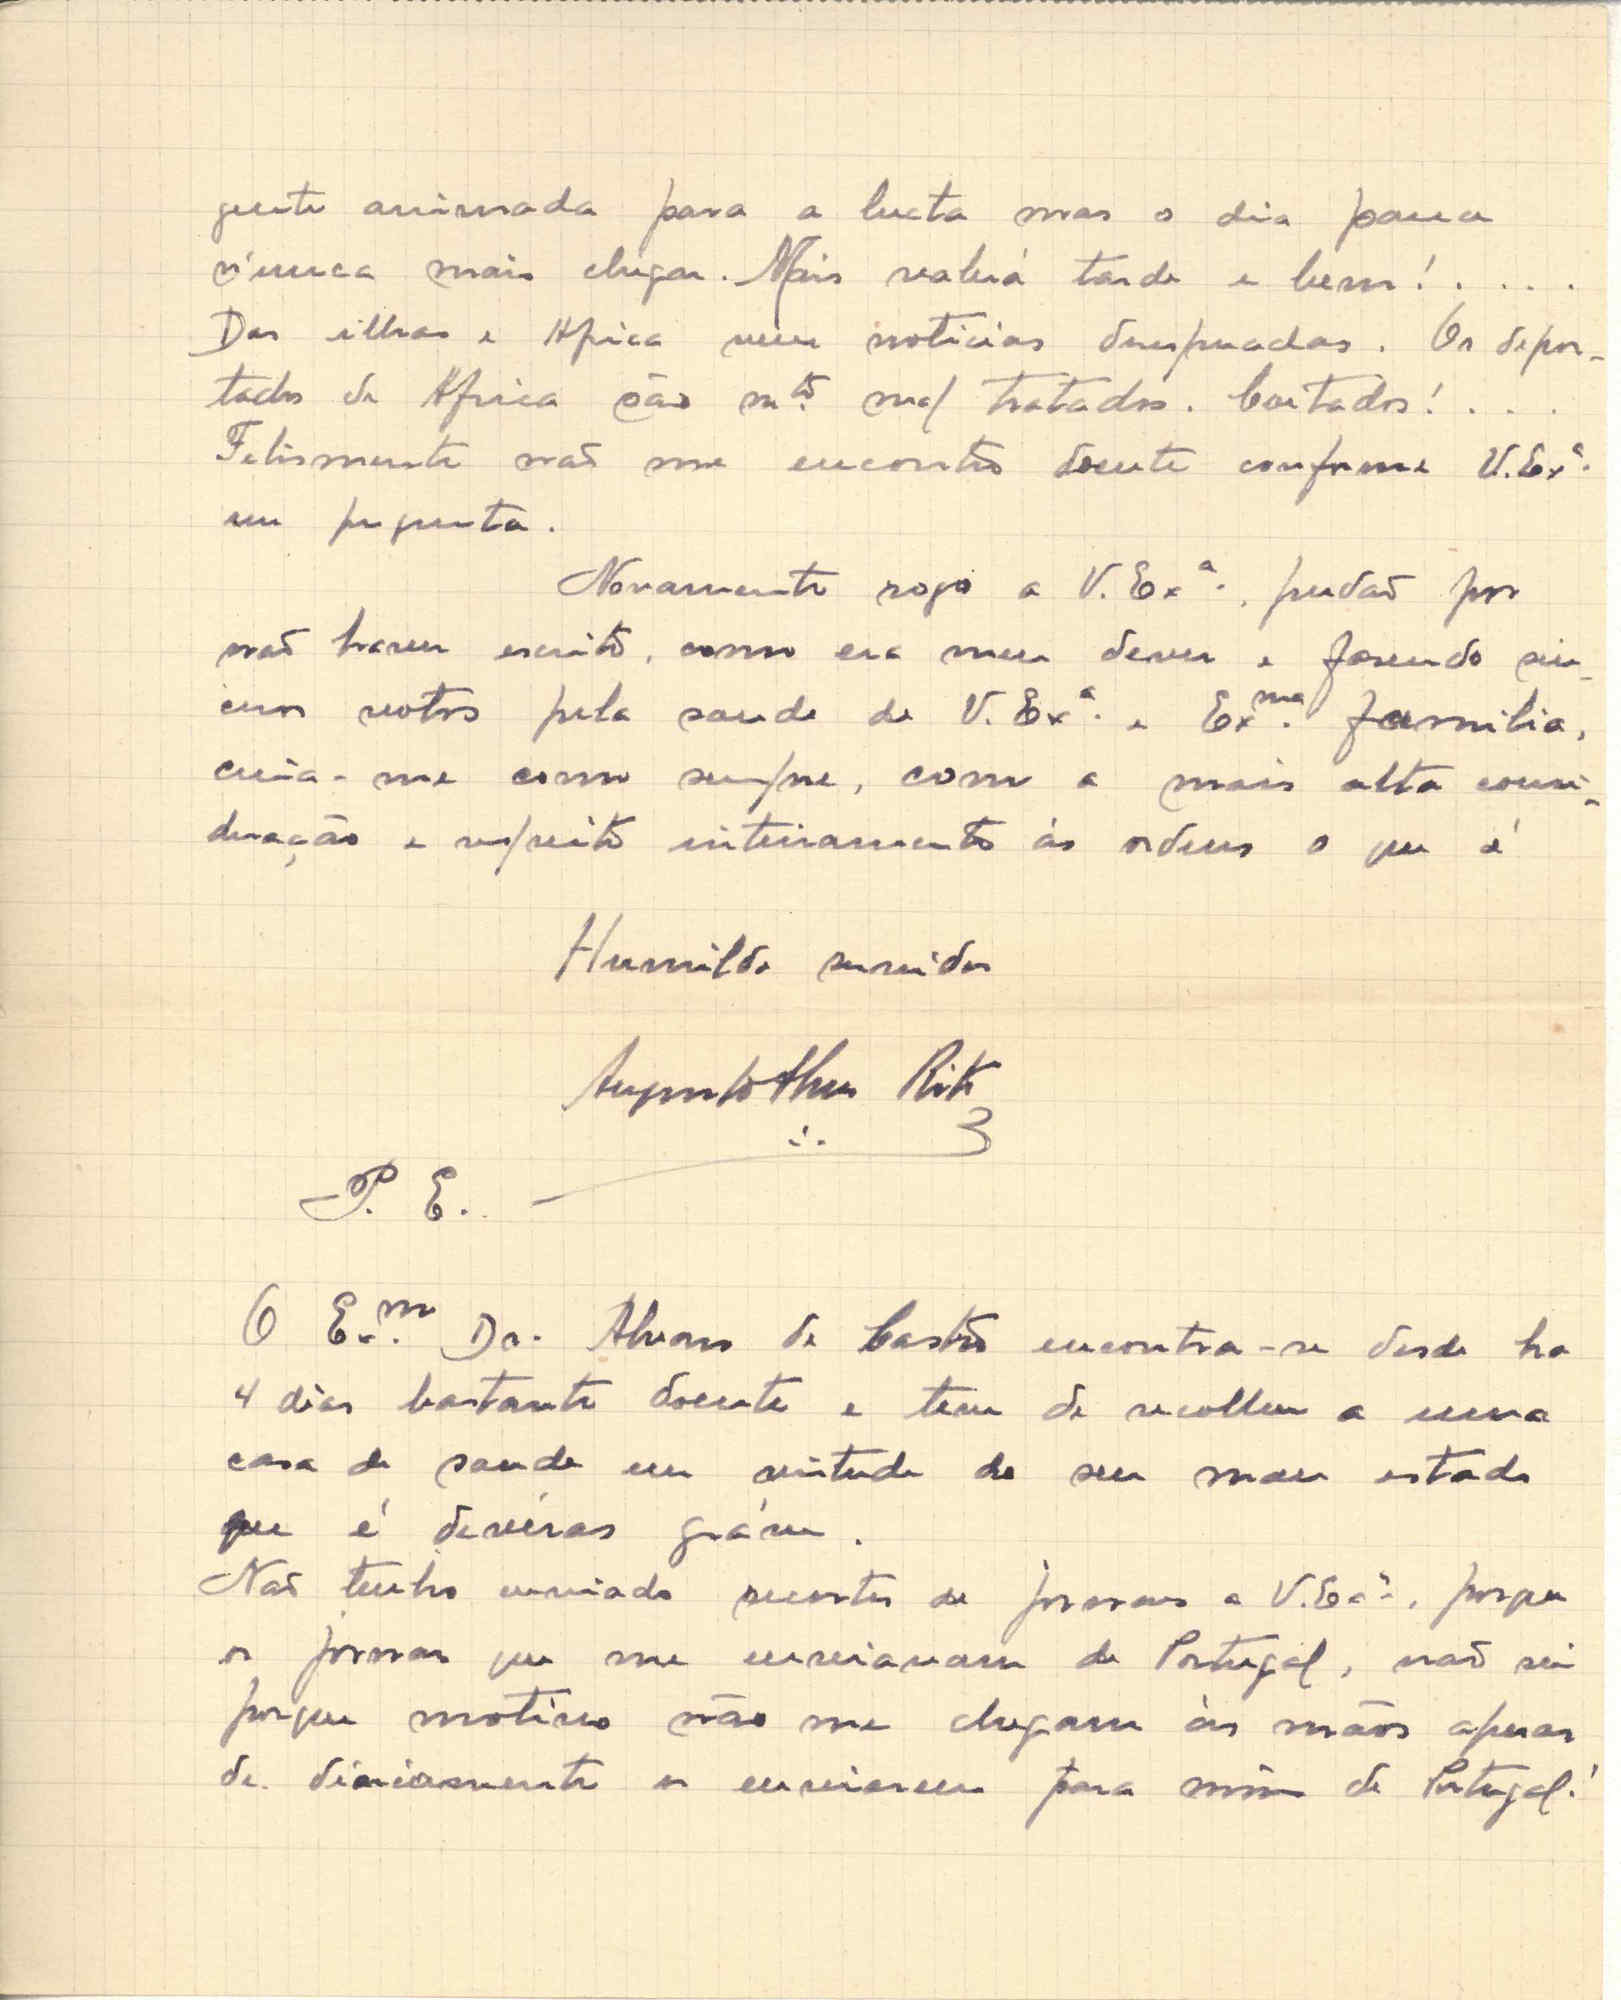 gente animada para a lucta mas o dia parece
núnca mais chegar. Mais valerá tarde e bem!....
Das ilhas e Africa nem noticias desesperadas. Os depor-
tados de Africa são mtº. mal tratados. Coitados!....
Felismente naõ me encontro doente conforme V. Exª.
me pergunta.
Novamente rogo a V. Exª., perdaõ por
naõ haver escrito, como era meu dever e fasendo sin-
ceros votos pela saude de V. Exª. e Exma. familia,
creia-me como sempre, com a mais alta consi-
deração e respeito inteiramente ás ordens o que é
Humilde servidor
Augusto Rita
P. E.
O Exm. Dr. Alvaro de Castro encontra-se desde ha
4 dias bastante doente e teve de recolher a uma
casa de saude em virtude do seu mau estado
que é devéras gráve.
Naõ tenho enviado recortes de jornaes a V. Exª., porque
os jornaes que me enviavam de Portugal, naõ sei
porque motivo não me chegam ás mãos apesar
de diariamente os enviarem para mim de Portugal!